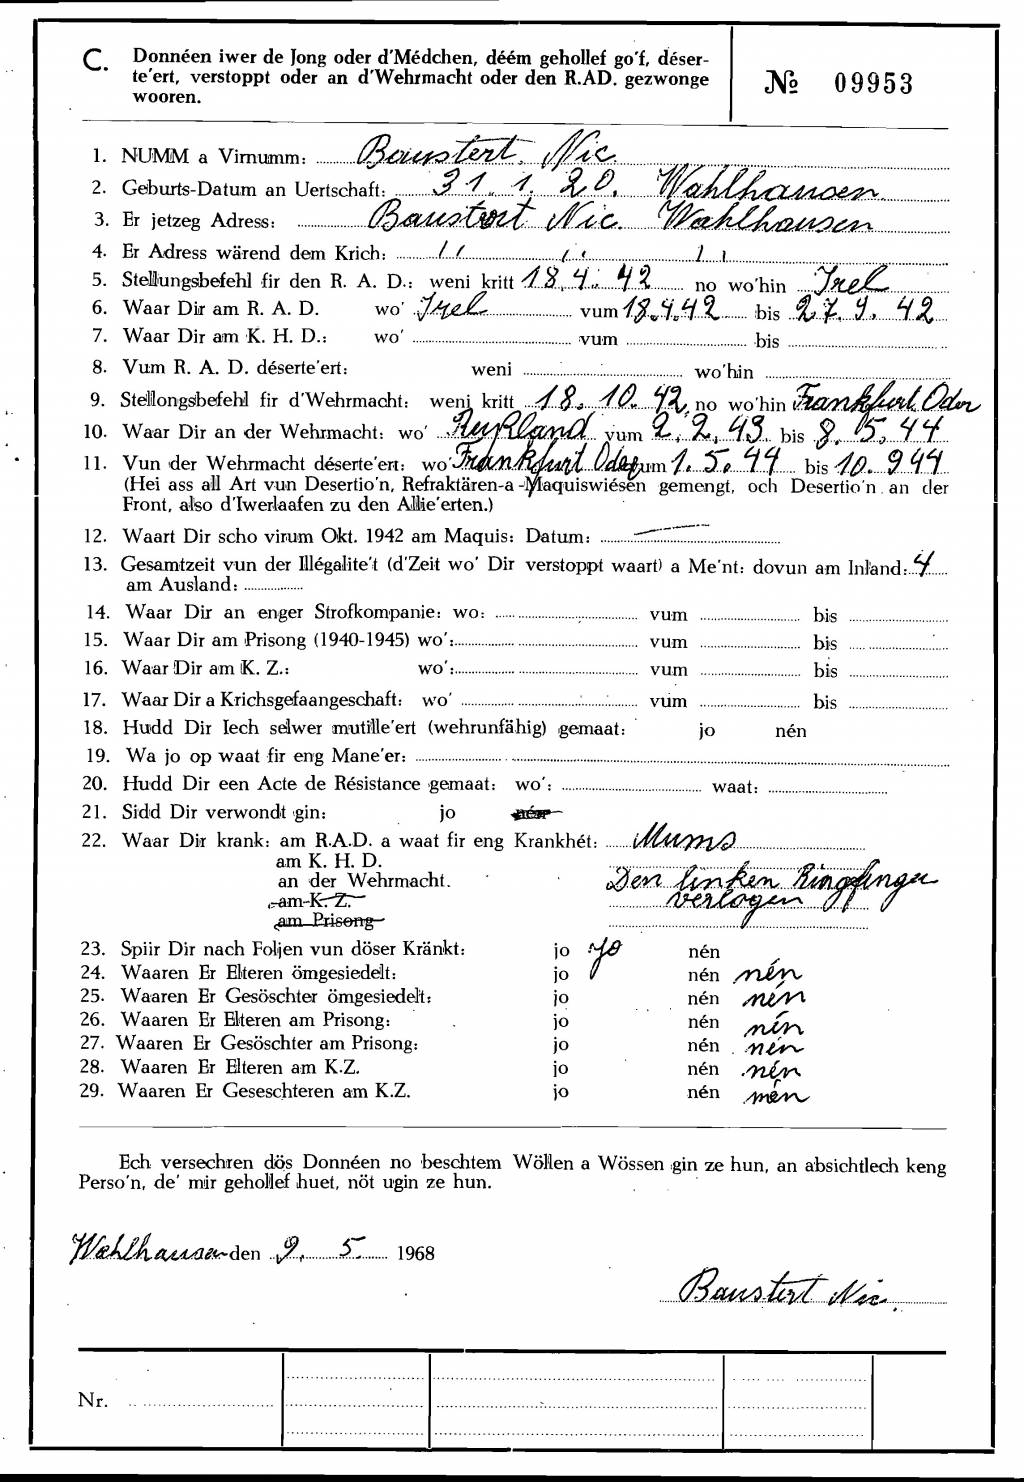 C. Donnéen iwer de Jong oder d'Médchen, déém gehollef go'f, déser-
te'ert, verstoppt oder an d'Wehrmacht oder den R.AD. gezwonge
wooren.
№ 09953
1. NUMM a Virnumm: Baustert. Nic.
2. Geburts-Datum an Uertschaft: 31. 1. 20. Wahlhausen
3. Er jetzeg Adress: Baustert Nic. Wahlhausen
4. Er Adress wärend dem Krich: ,, ,, ,,
5. Stellungsbefehl fir den R. A. D.: weni kritt 18.4. 42 no wo'hin Irel
6. Waar Dir am R. A. D. wo' Irel vum 18.4.42 bis 27. 9. 42
7. Waar Dir am K. H. D.: wo' vum bis
8. Vum R. A. D. déserte'ert: weni wo'hin
9. Stellongsbefehl fir d'Wehrmacht: weni kritt 18. 10. 42, no wo'hin Frankfurt Oder
10. Waar Dir an der Wehrmacht: wo' Rußland vum 2. 2. 43 bis 8. 5. 44
11. Vun der Wehrmacht déserte'ert: wo' Frankfurt Oder vum 1. 5. 44 bis 10. 9 44
(Hei ass all Art vun Desertio'n, Refraktären-a-Maquiswiésen gemengt, och Desertio'n an der
Front, also d'Iwerlaafen zu den Allie'erten.)
12. Waart Dir scho virum Okt. 1942 am Maquis: Datum:
13. Gesamtzeit vun der Illégalite't (d'Zeit wo' Dir verstoppt waart) a Me'nt: dovun am Inland: 4
am Ausland:
14. Waar Dir an enger Strofkompanie: wo: vum bis
15. Waar Dir am Prisong (1940-1945) wo': vum bis
16. Waar Dir am K. Z.: wo': vum bis
17. Waar Dir a Krichsgefaangeschaft: wo' vum bis
18. Hudd Dir Iech selwer mutille'ert (wehrunfähig) gemaat: jo nén
19. Wa jo op waat fir eng Mane'er:
20. Hudd Dir een Acte de Résistance gemaat: wo': waat:
21. Sidd Dir verwondt gin: jo nén
22. Waar Dir krank: am R.A.D. a waat fir eng Krankhét: Mums
am K. H. D.
an der Wehrmacht. Den linken Ringfinger
am K. Z. verlogen
am Prisong
23. Spiir Dir nach Foljen vun döser Kränkt: jo jo nén
24. Waaren Er Elteren ömgesiedelt: jo nén nén
25. Waaren Er Gesöschter ömgesiedelt: jo nén nén
26. Waaren Er Elteren am Prisong: jo nén nén
27. Waaren Er Gesöschter am Prisong: jo nén nén
28. Waaren Er Elteren am K.Z. jo nén nén
29. Waaren Er Geseschteren am K.Z. jo nén nén
Ech versechren dös Donnéen no beschtem Wöllen a Wössen gin ze hun, an absichtlech keng
Perso'n, de' mir gehollef huet, nöt ugin ze hun.
Wahlhausen den 9. 5. 1968
Baustert Nic.
Nr.